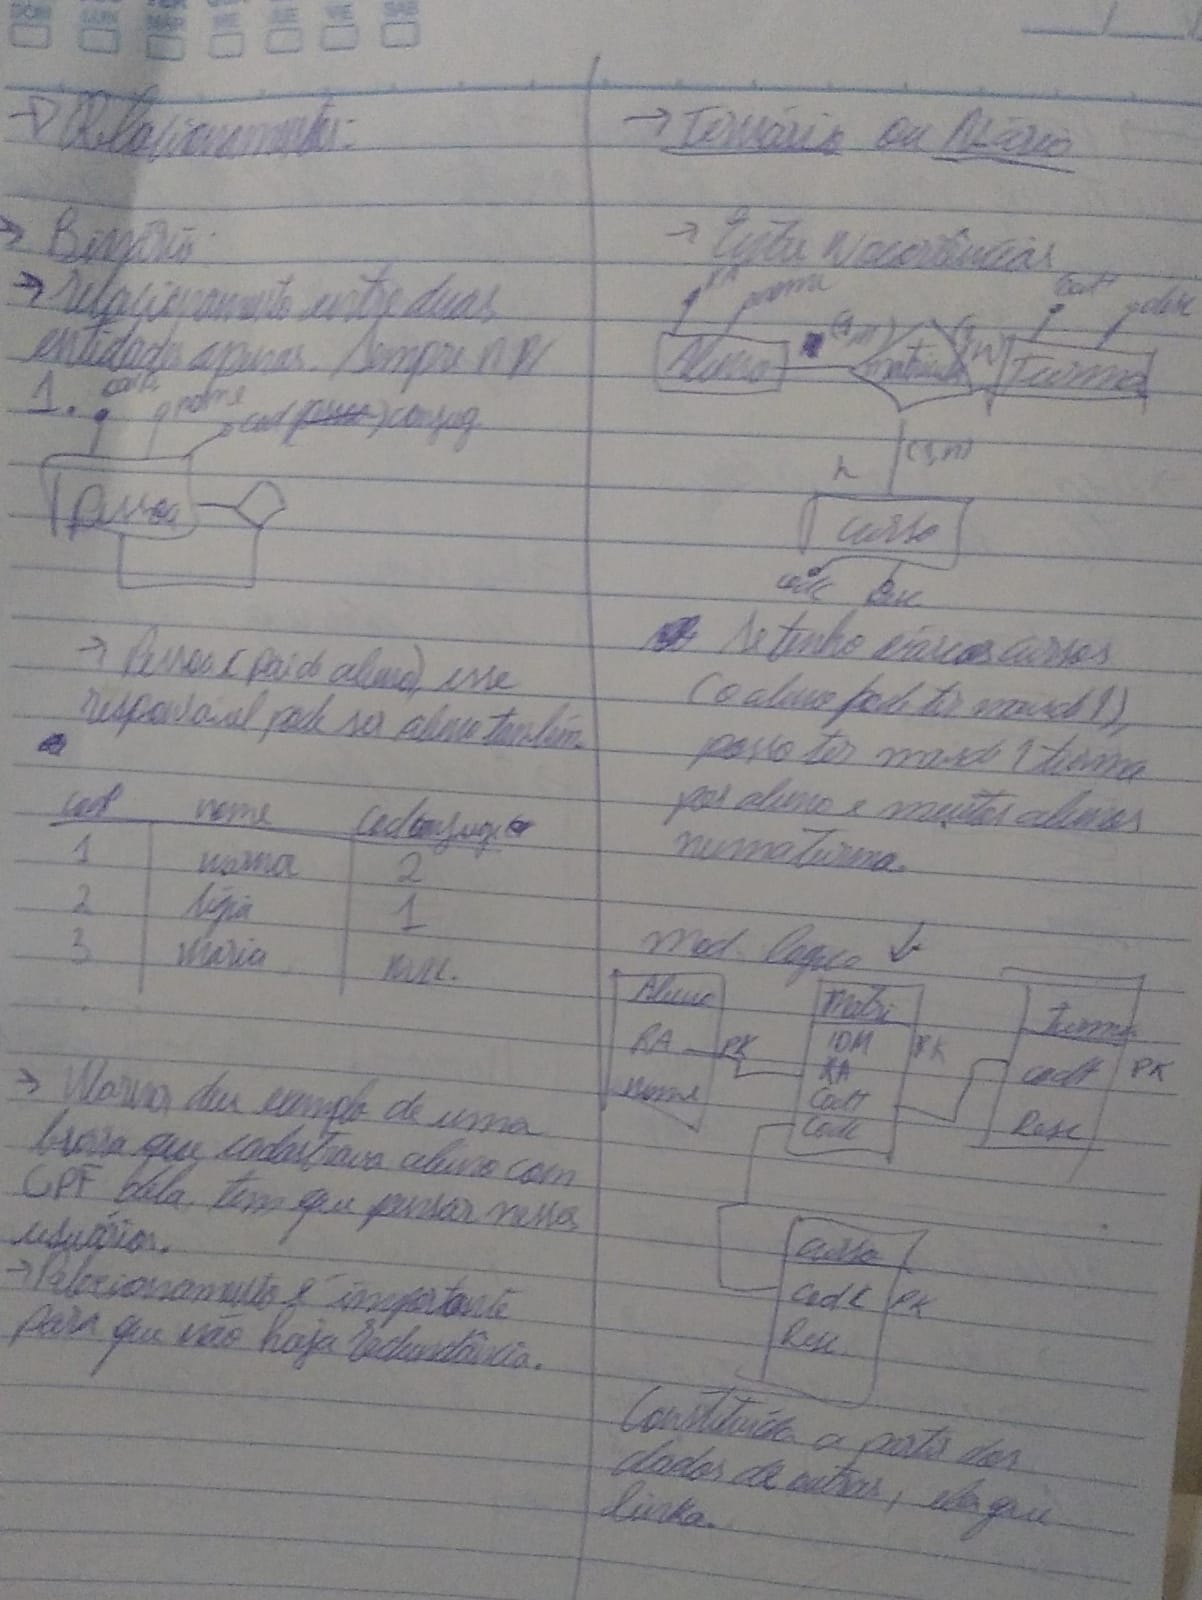 DOM LUN MAR ME JUE VIE SAB
→ Relacionamento:
→ Binário
→ relacionamento entre duas
entidades apenas. Sempre
1. nome
cod conjug
Pessoa
→ Pessoa (pai do aluno), esse
responsável pode ser aluno também.
cod nome Codconjuge
1 2
2 Ligia 1
3 Maria null.
→ deu exemplo de uma
que cadastrava aluno com
CPF dela, tem que pensar nesses
usuários.
→ Relacionamento é importante
para que não haja redundância.
→ Ternário ou
→ Entre N ocorrências
RA nome
Aluno (1,n) matricula Turma
n (1,n)
Curso
codc
Se tenho vários cursos
(o aluno pode ter mais d 1),
posso ter mais d 1 turma
por aluno e muitos alunos
numa turma.
Mod. logico ↓
Aluno Matri Turma
RA PK IDM PK codt PK
nome RA Desc
Codt
Codc
Curso
CodC PK
Desc
Constituída a partir dos
dados de outras, ela que
linka.